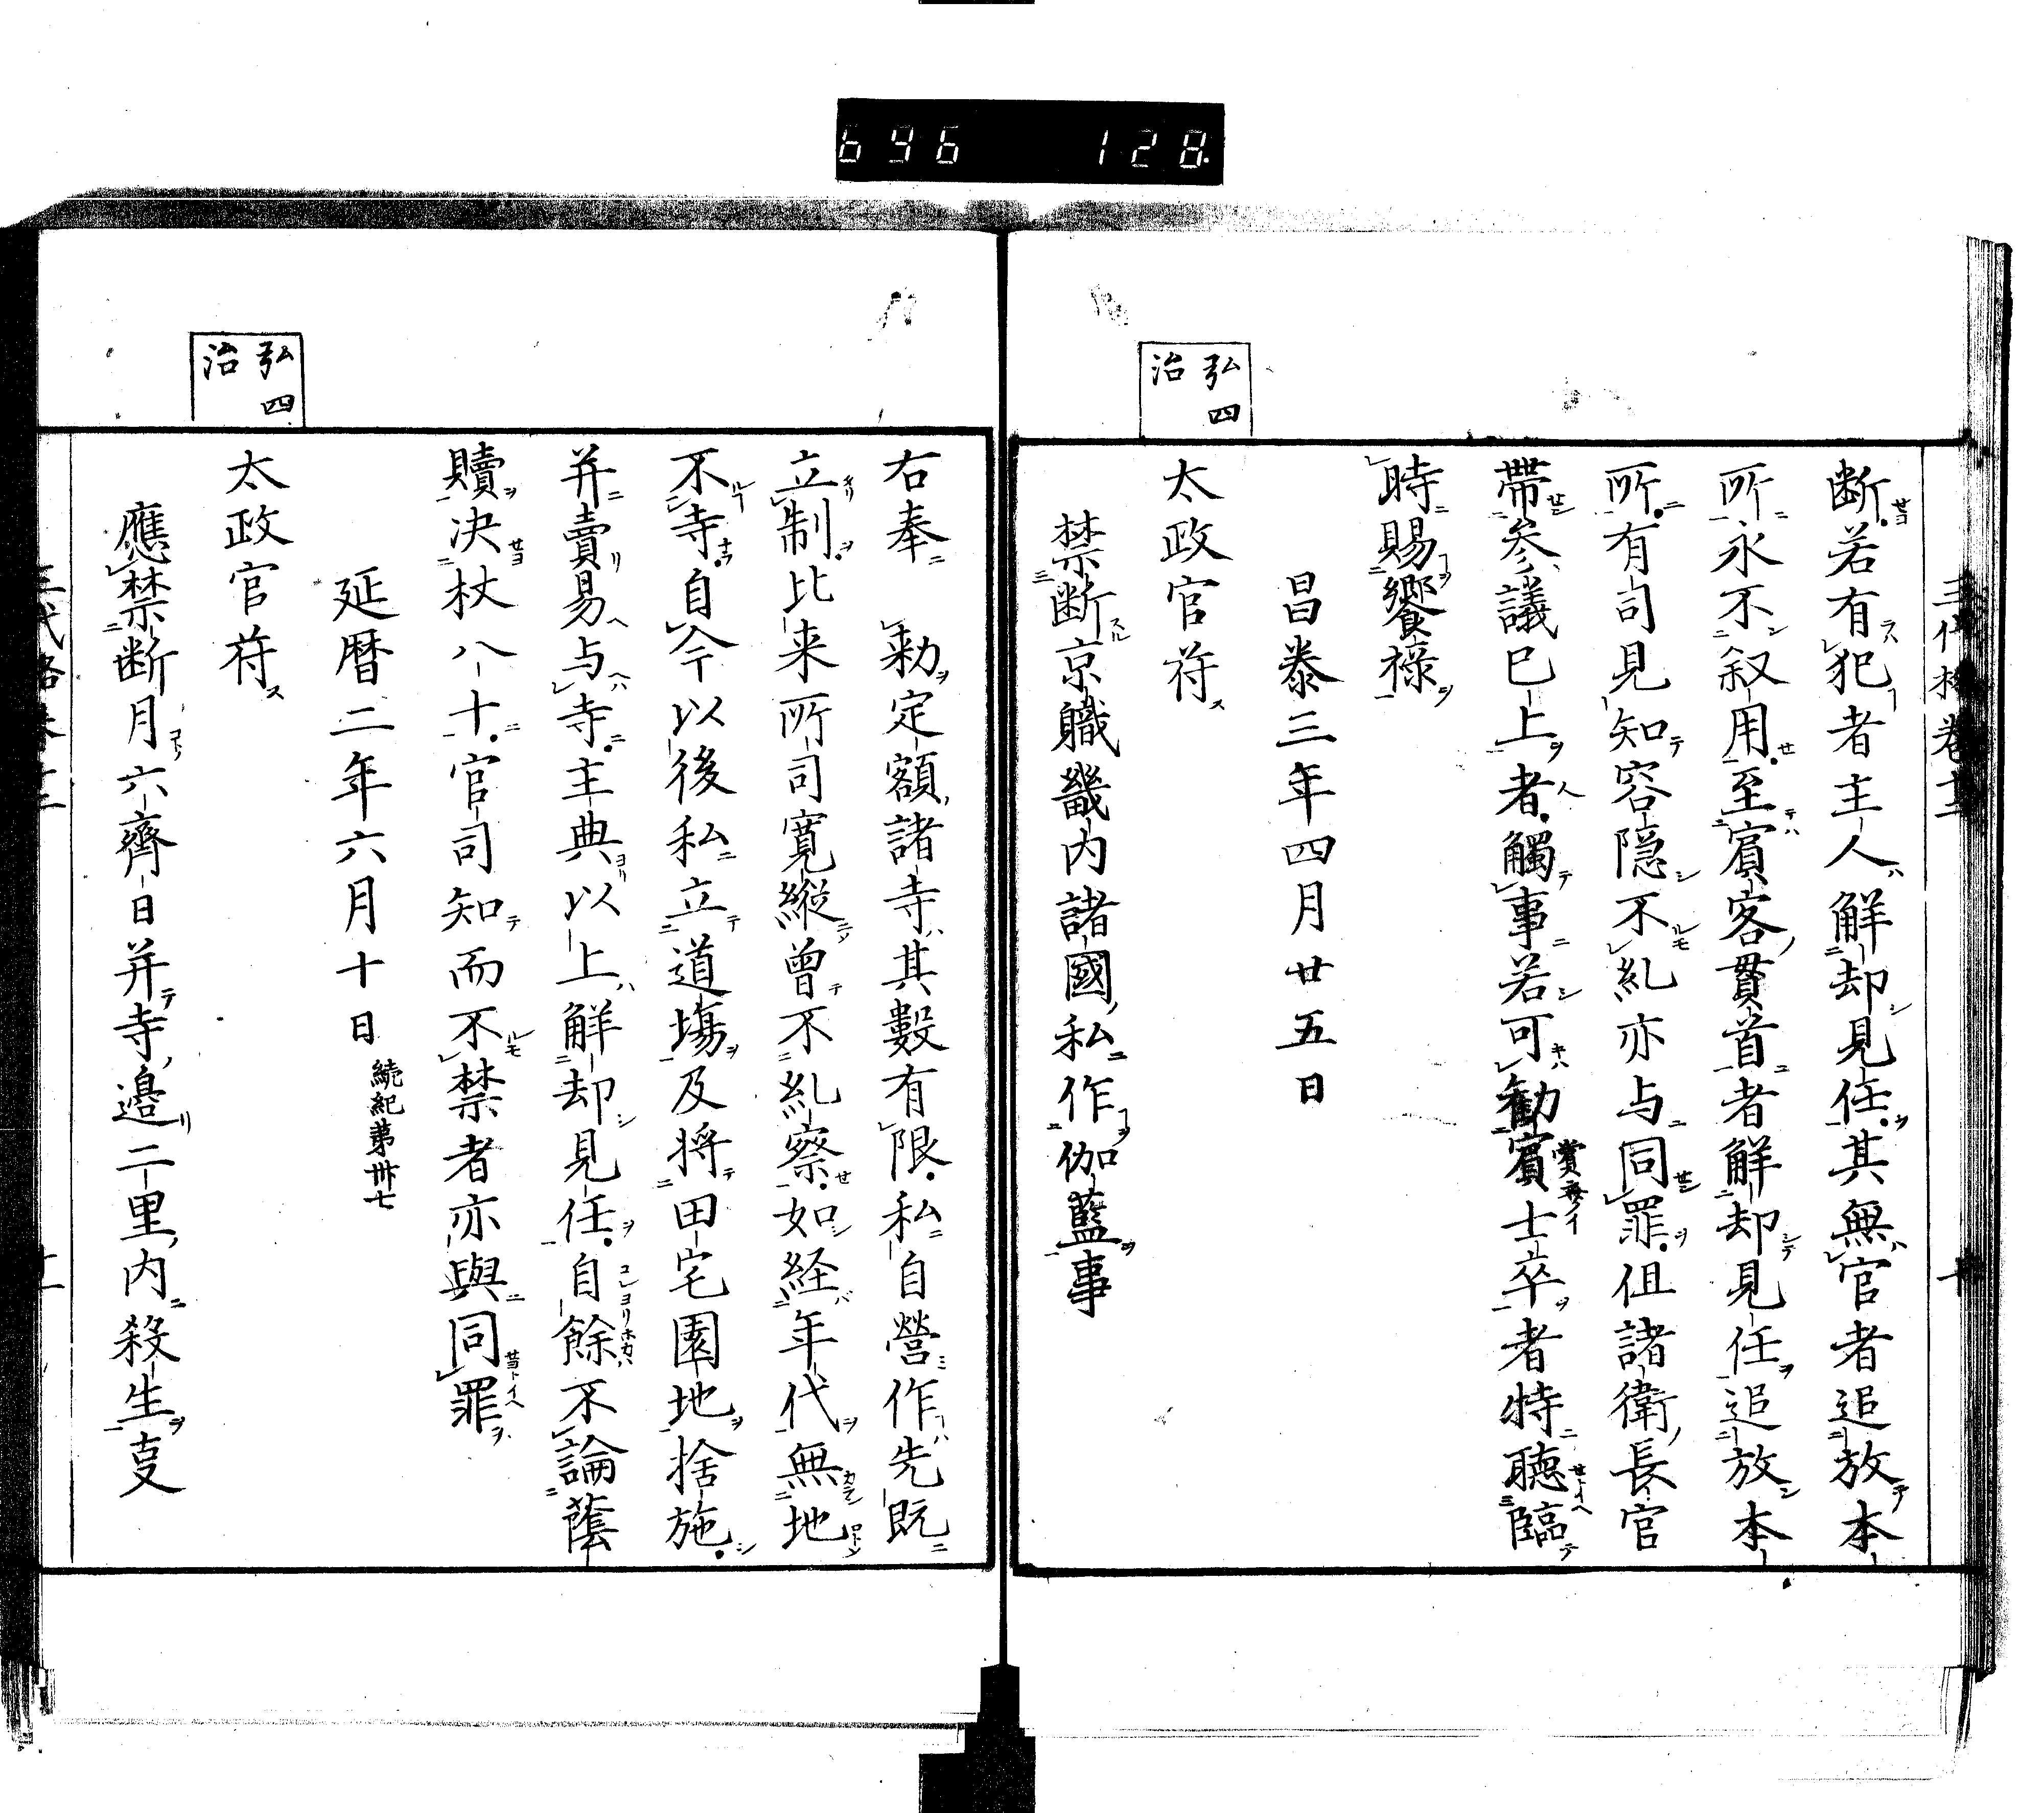 696 128
三代格卷十二 十
断若有犯者主人解却見任其無官者追放本
所永不叙用至賓客貫首者解却見任追放本
所有司見知容隠不糺亦与同罪但諸衛長官
帯参議已上者觸事若可勧賓士卒者特聴臨
時賜饗禄
昌泰三年四月廿五日
弘四
治
太政官符
禁断京職畿内諸國私作伽藍事
右奉 勅定額諸寺其數有限私自營作先既
立制比来所司寛縦曾不糺察如経年代無地
不寺自今以後私立道塲及将田宅園地捨施
并賣易与寺主典以上解却見任自餘不論蔭
贖决杖八十官司知而不禁者亦與同罪
延暦二年六月十日 続紀第卅七
弘四
治
太政官符
應禁断月六齊日并寺邉二里内殺生㕝